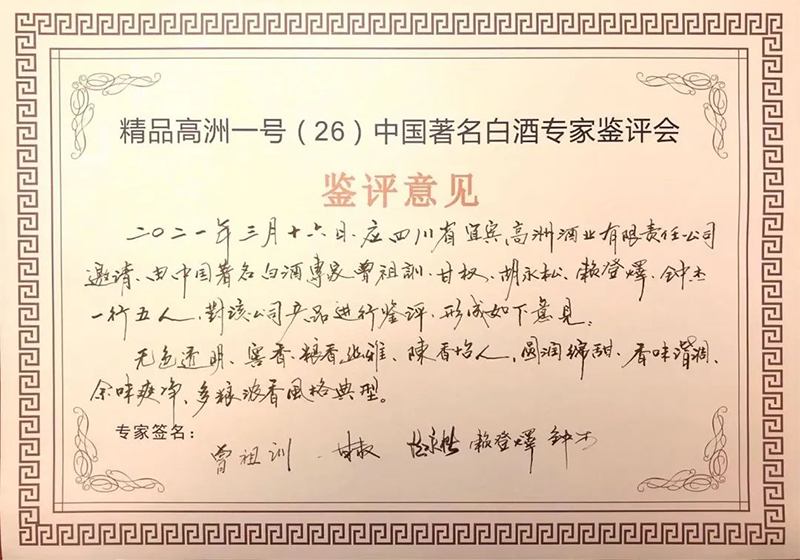 精品高洲一号（26）中国著名白酒专家鉴评会
鉴评意见
二〇二一年三月十六日，应四川省宜宾高洲酒业有限责任公司
邀请，由中国著名白酒專家曾祖訓、甘权、胡永松、赖登燡、钟杰
一行五人，對该公司产品进行鉴评，形成如下意見：
无色透明、窖香、粮香幽雅、陳香怡人，圆润绵甜、香味谐调、
余味爽净，多粮浓香風格典型。
专家签名：
曾祖训 甘权 胡永松 赖登燡 钟杰